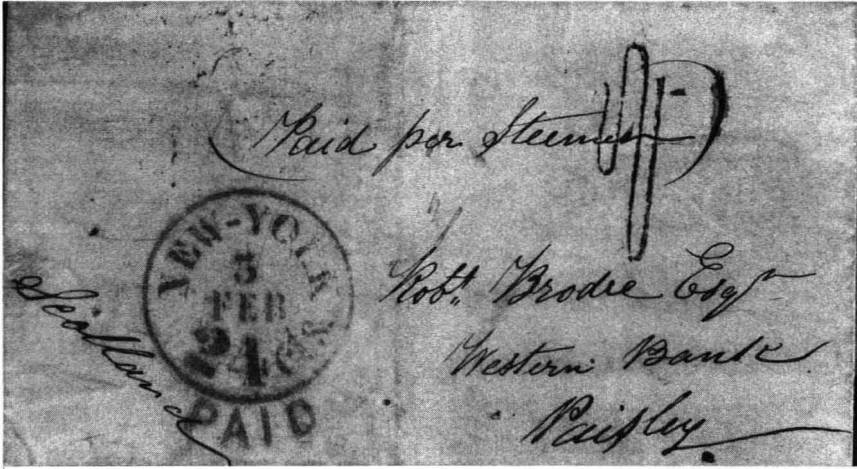 Paid per Steemer
NEW-YORK
3
FEB
24
PAID
Scotland
Robt. Brodie Esqr
Western Bank
Paisley